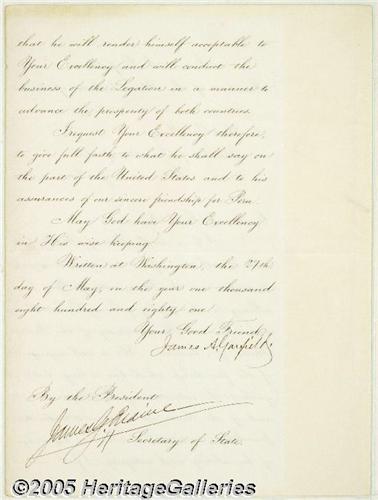 that he will render himself acceptable to
Your Excellency and will conduct the
business of the Legation in a manner to
advance the prosperity of both countries.
I request Your Excellency therefore,
to give full faith to what he shall say on
the part of the United States and to his
assurances of our sincere friendship for Peru.
May God have Your Excellency
in His wise keeping
Written at Washington, the 27th
day of May, in the year one thousand
eight hundred and eighty one
Your Good Friend,
James A. Garfield
By the President
James G. Blaine
Secretary of State.
©2005 HeritageGalleries